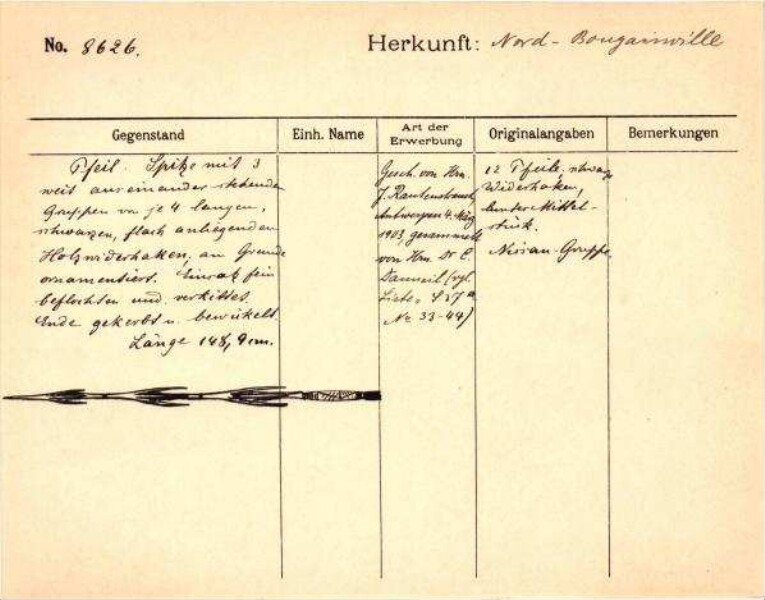 No. 8626.
Herkunft: Nord-Bougainville
Gegenstand
Einh. Name
Art der Erwerbung
Originalangaben
Bemerkungen
Pfeil. Spitze mit 3
weit auseinander stehenden
Gruppen von je 4 langen,
schwarzen, flach anliegenden
Holzwiderhaken, am Grunde
ornamentiert. Einsatz fein
beflochten und verkittet.
Ende gekerbt u. bewickelt.
Länge 148,9 cm.
Gesch. von Hrn.
J. Rautenstrauch,
Antwerpen 4. März
1903, gesammelt
von Hrn. Dr C.
Danneil (vgl.
Liste, S 37a
No 33-44)
12 Pfeile, schwarze
Widerhaken,
buntes Mittel-
stück.
Nissan-Gruppe.